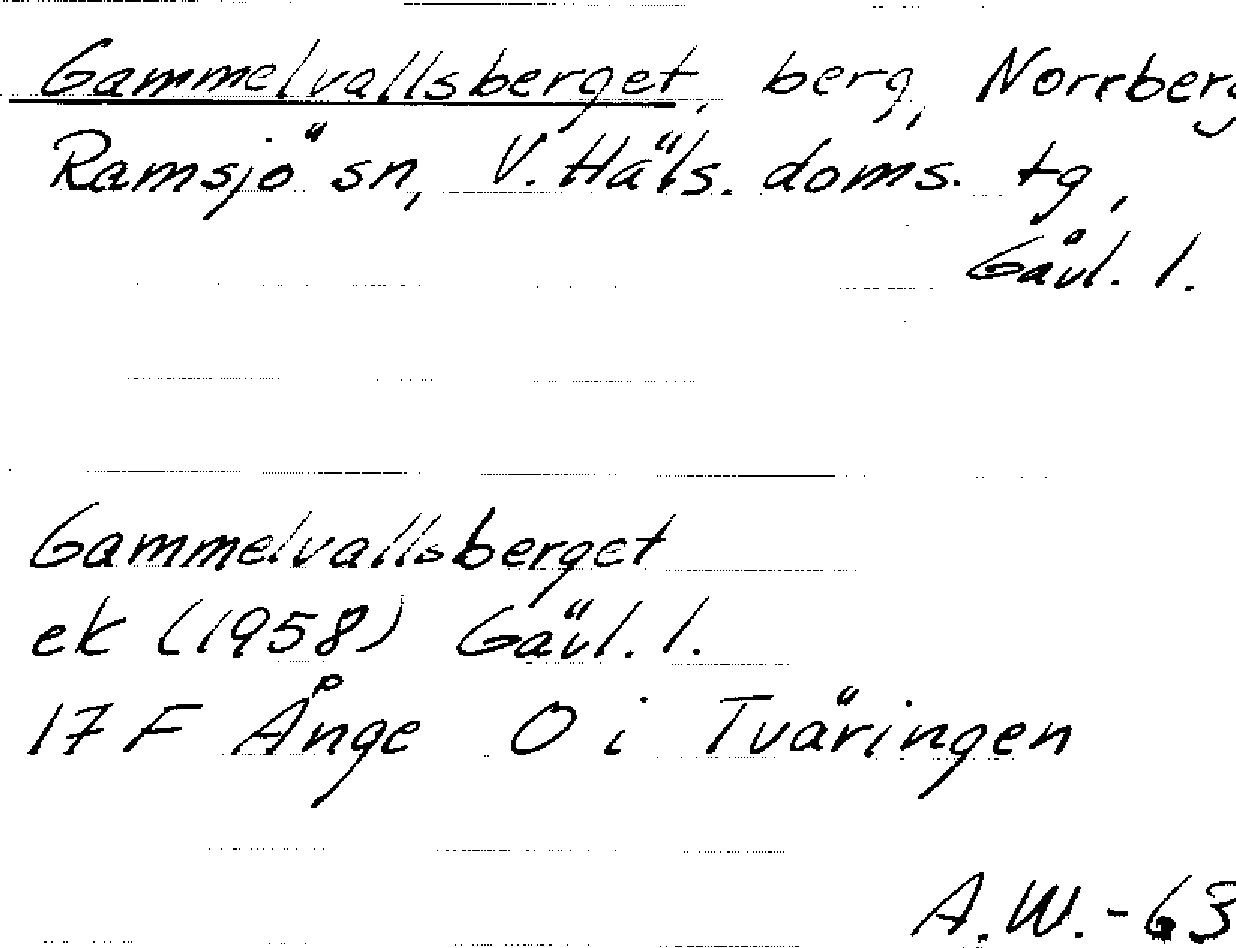 Gammelvallsberget, berg, Norrberg
Ramsjö sn, V. Häls. doms. tg,
Gävl. l.
Gammelvallsberget
ek (1958) Gävl. l.
17 F Ånge O i Tväringen
A.W.-63